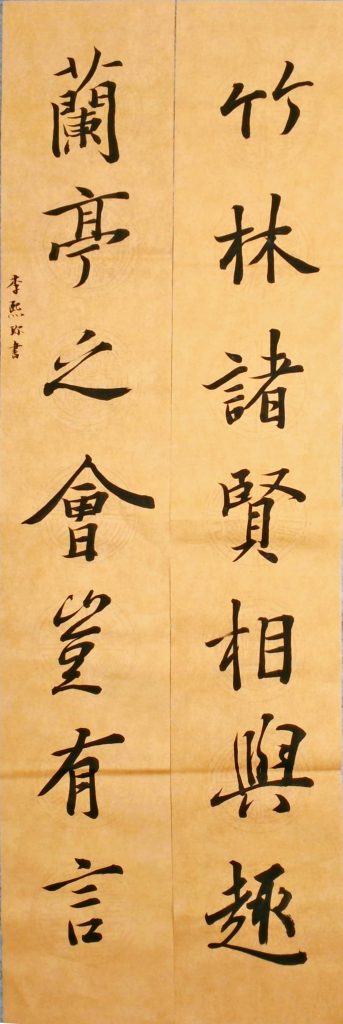 竹林諸賢相與趣
蘭亭之會豈有言
李熙珎書